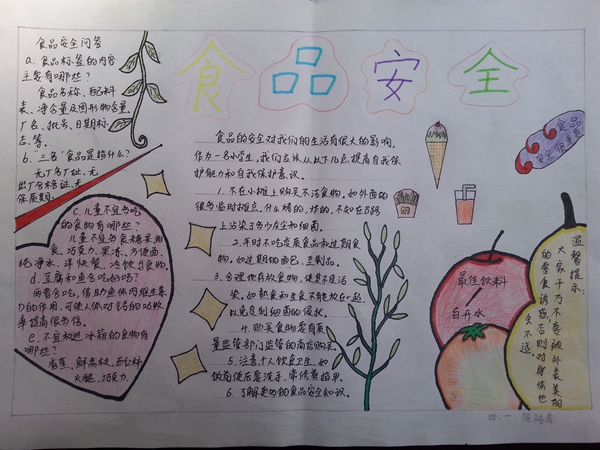 食品安全
食品安全问答
a. 食品标签的内容
主要有哪些?
食品名称、配料
表、净含量及固形物含量、
厂名、批号、日期标
志等.
b. "三无"食品是指什么?
无厂名厂址、无
出厂合格证、无
保质期.
c. 儿童不宜多吃
的食物有哪些?
儿童不宜多食糖果、甜
食、巧克力、果冻、方便面、
纯净水、洋快餐、冷饮
d. 豆腐和鱼合吃好吗?
两者合吃,借助鱼体内维生素
D的作用,可使人体对钙的吸收
率提高很多倍.
e. 不宜放进冰箱的食物有
哪些?
香蕉、鲜荔枝、西红柿、
火腿、巧克力.
食品的安全对我们的生活有很大的影响,
作为一名小学生,我们应该从以下几点提高自我保
护能力和自我保护意识。
1. 不在小摊上购买不洁食物。如外面的
很多临时摊点,什么烤的,炸的,不知在马路
上沾染了多少灰尘和细菌。
2. 平时不吃变质食品和过期食
物。如过期的面包、豆制品。
3. 合理地存放食物,使其不受污
染。如熟食和生食不能放在一起,
以免受到细菌的侵扰。
4. 购买食物要有质
量监管部门监管的商店购买。
5. 注意个人饮食卫生。如
饭前便后要洗手,常修剪指甲。
6. 了解更多的食品安全知识。
食品
安全很重要
最佳饮料
白开水
温馨提示:
大家千万不要被外表美丽
的零食诱惑,否则对身体也
会不适
四.一